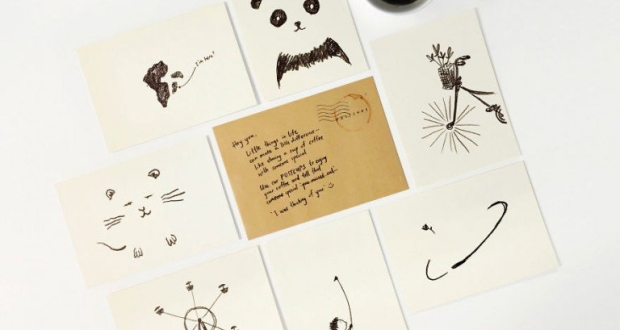 "I'm here"
POSTCARD
Hey you,
Little things in life
can make a BIG difference—
Like sharing a cup of coffee
with someone special
Use our POSTCUPS to enjoy
your coffee and tell that
someone special 'you missed out'
'I was thinking of you' :)